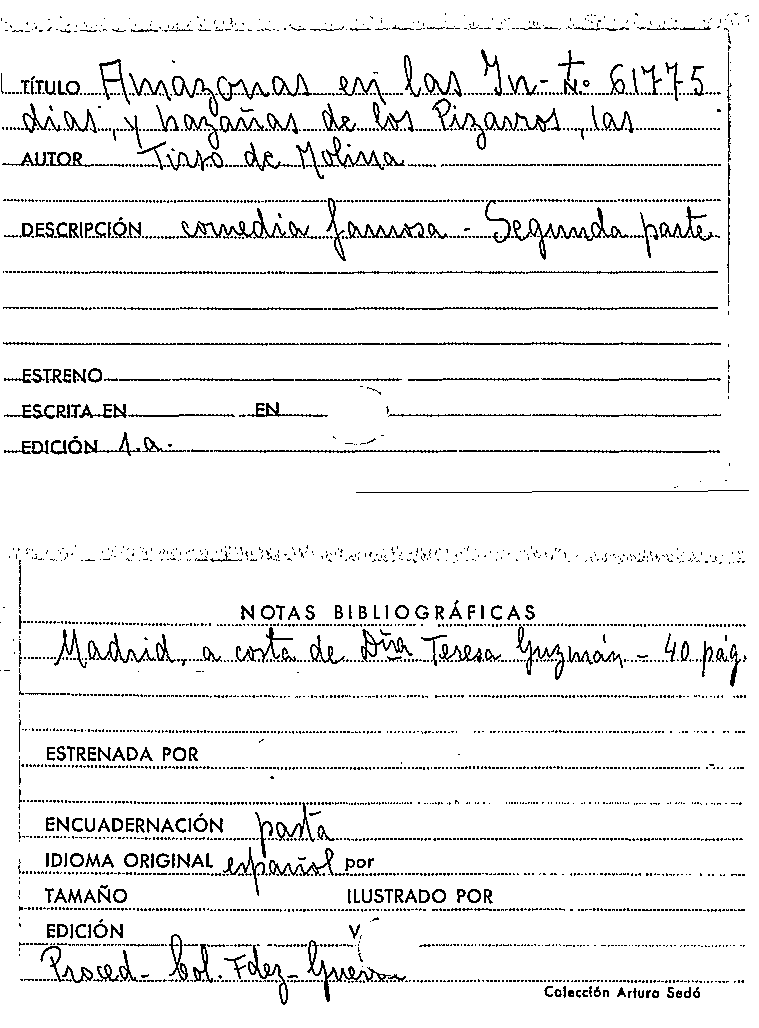 TÍTULO Amazonas en las In- t.º 61775
dias, y hazañas de los Pizarros, las
AUTOR Tirso de Molina
DESCRIPCIÓN comedia famosa - Segunda parte
ESTRENO
ESCRITA EN EN
EDICIÓN 1.a.
NOTAS BIBLIOGRÁFICAS
Madrid, a costa de Dña Teresa Guzmán - 40 pág.
ESTRENADA POR
ENCUADERNACIÓN pasta
IDIOMA ORIGINAL español por
TAMAÑO ILUSTRADO POR
EDICIÓN V
Proced- Col. Fdez- Guerra
Colección Arturo Sedó